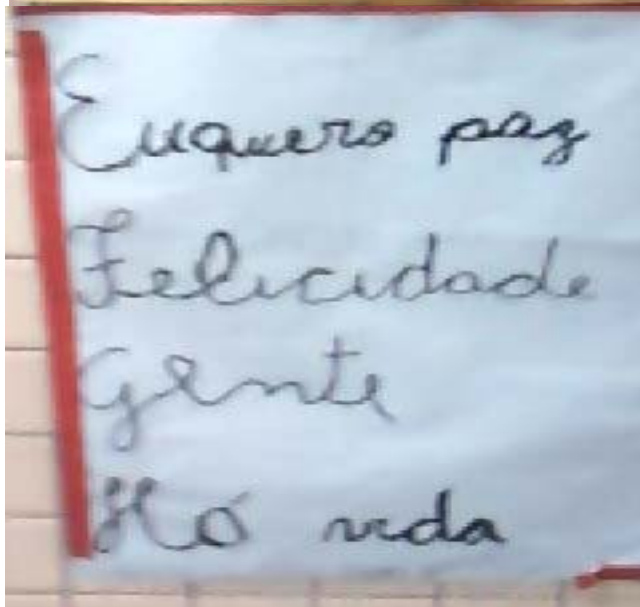 Euquero paz
Felicidade
Gente
Há vida